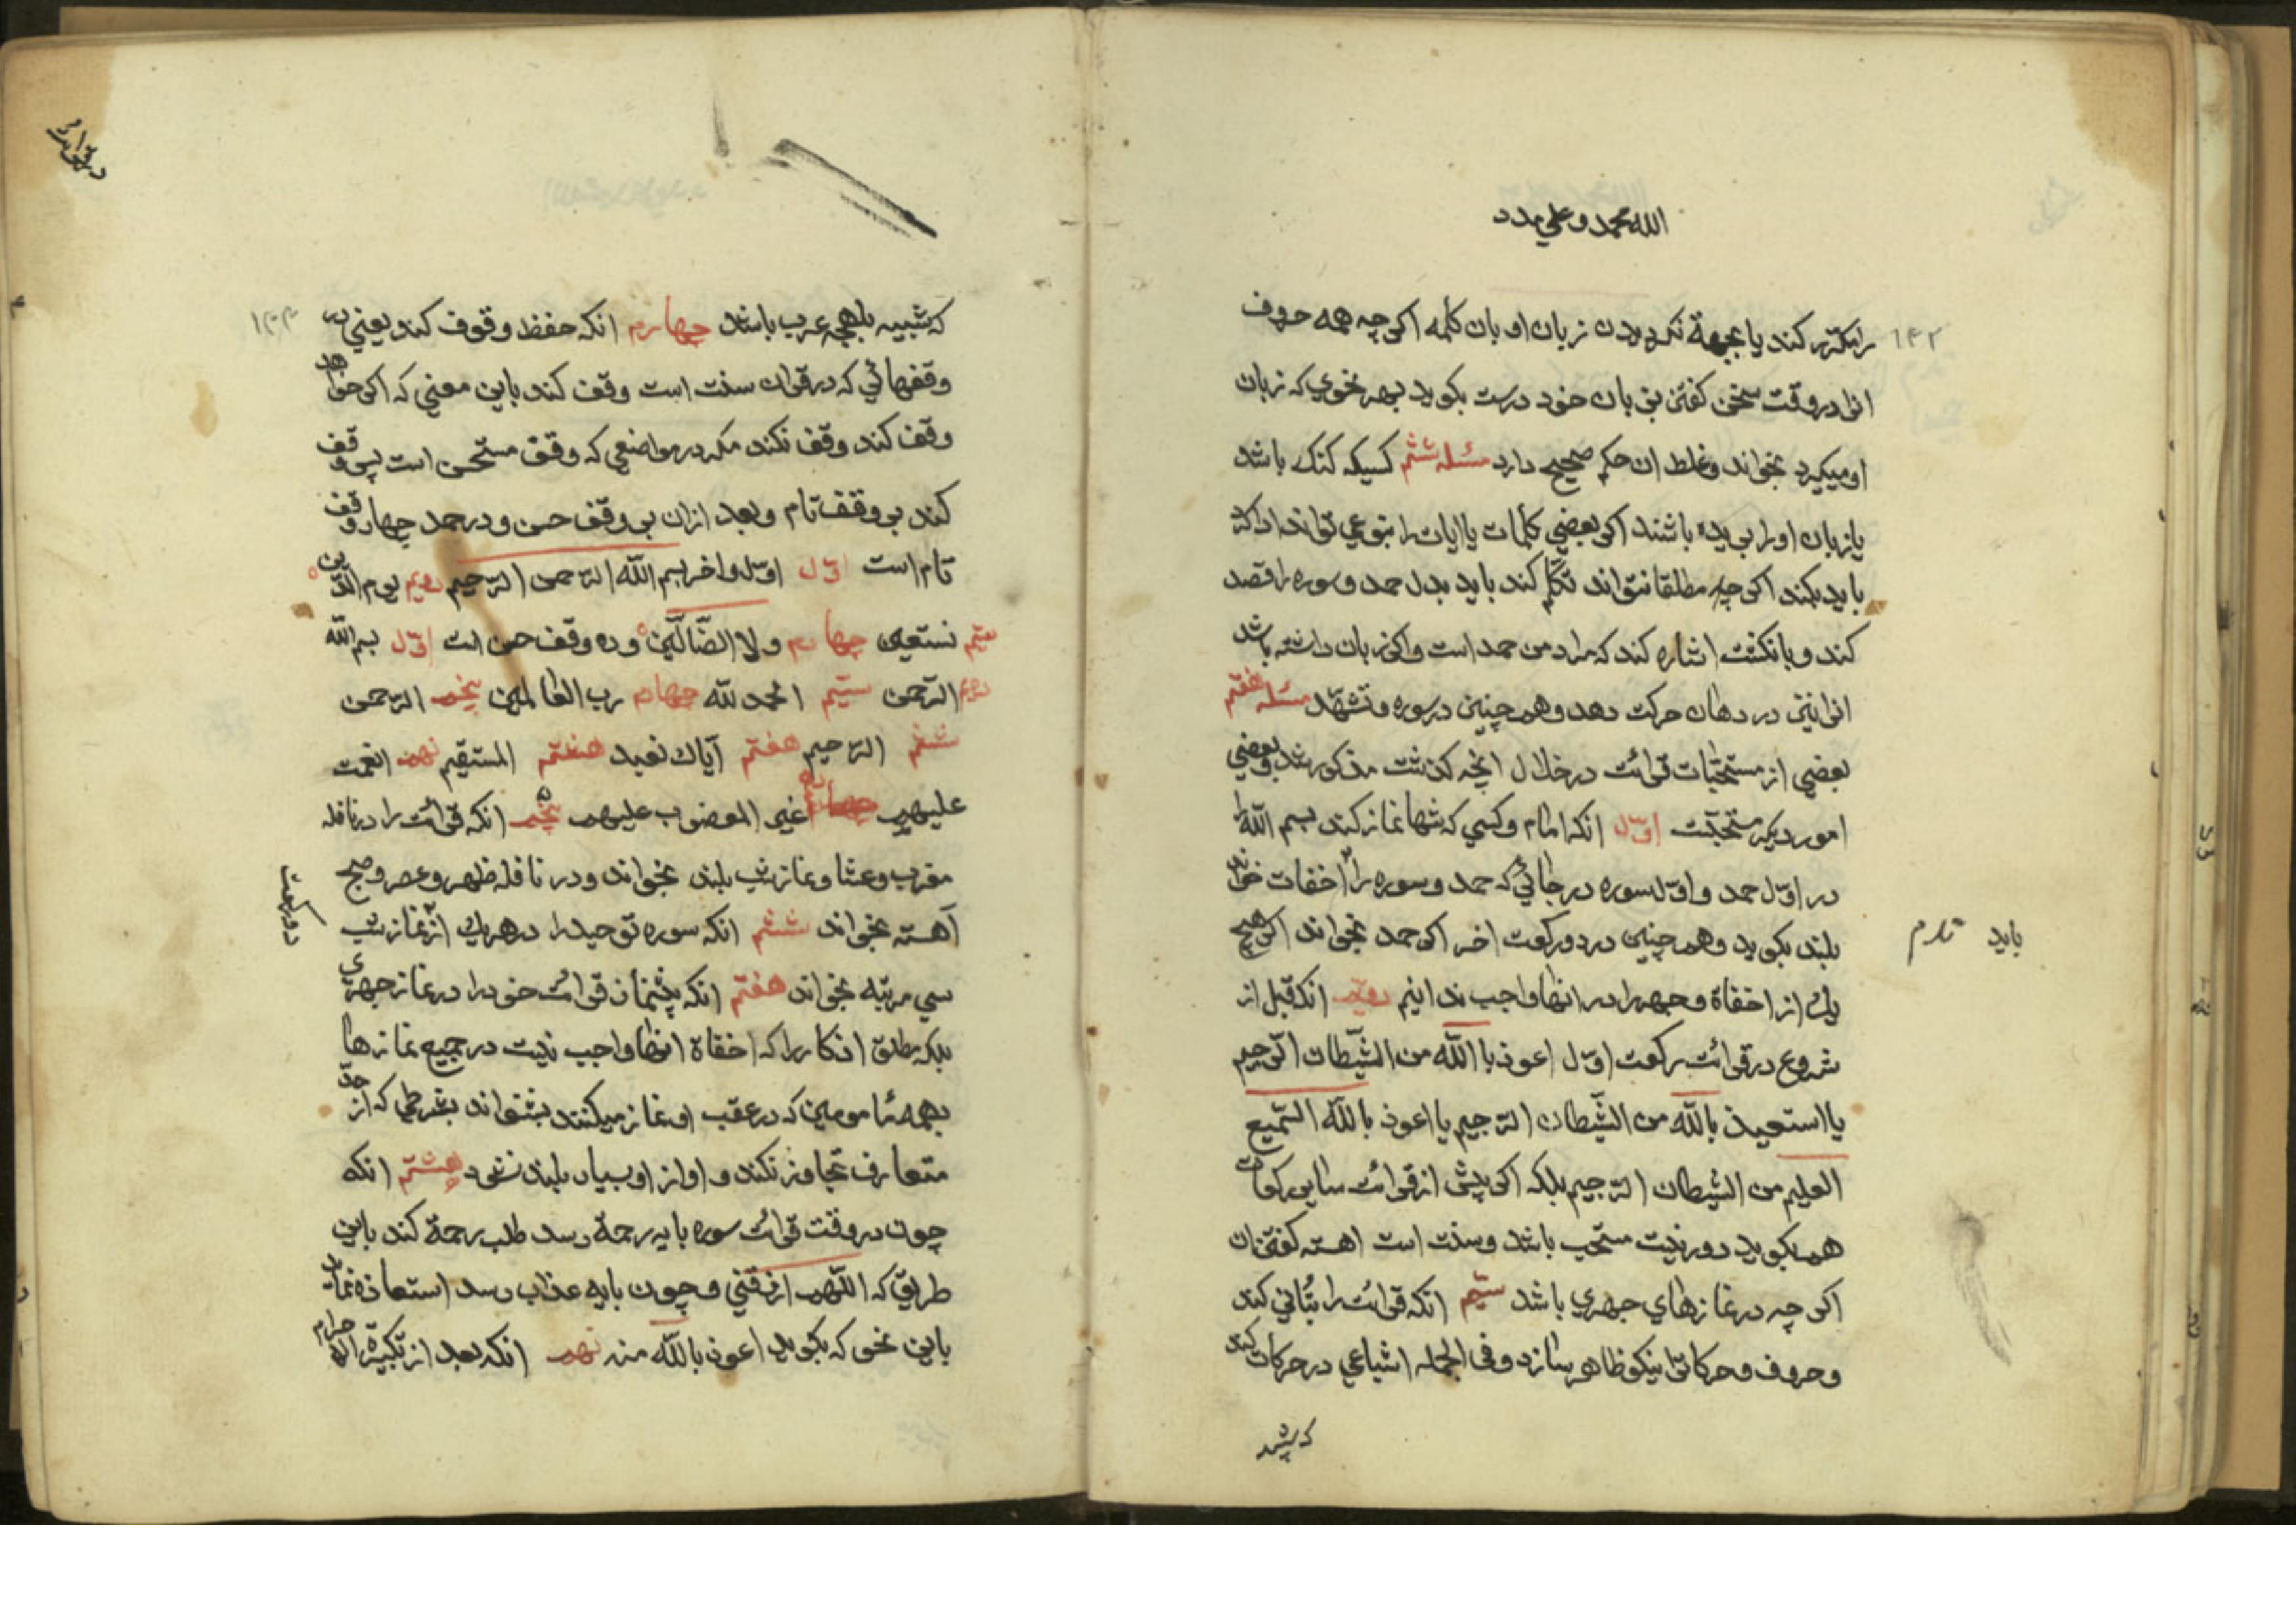 الله محمد و علي مدد
۱۴۲
را مكرر كند يا بجهة نكرديدن زبان او بان كلمه اكرچه همه حروف
انرا در وقت سخن كفتن بزبان خود درست بكويد بهر نحوي كه زبان
او ميكردد بخواند و غلط ان حكم صحيح دارد مسئله ششم كسيكه كنك باشد
يا زبان او را بريده باشند اكر بعضي كلمات يا ايات را بنوعي تواند ادا كند
بايد بكند اكرچه مطلقا نتواند تكلّم كند بايد بدل حمد و سوره را قصد
كند و بانكشت اشاره كند كه مراد من حمد است و اكر زبان داشته باشد
انرا نيز در دهان حركت دهد و هم چنين در سوره و تشهّد مسئله هفتم
بعضي از مستحبّات قرائت در خلال انچه كذشت مذكور شد و بعضي
امور ديكر مستحبّست اوّل انكه امام و كسي كه تنها نماز كند بسم الله را
در اوّل حمد و اوّل سوره در جائي كه حمد و سوره را اخفات خواند
بلند بكويد و هم چنين در دو ركعت اخر اكر حمد بخواند اكر هيچ
بايد
يك از اخفاة و جهر را در انها واجب ندانيم دويّم انكه قبل از
شروع در قرائت ركعت اوّل اعوذ بالله من الشّيطان الرّجيم
يا استعيذ بالله من الشّيطان الرّجيم يا اعوذ بالله السّميع
العليم من الشيطان الرّجيم بلكه اكر پيش از قرائت ساير ركعات
هم بكويد دور نيست مستحب باشد و سنت است اهسته كفتن ان
اكرچه در نمازهاي جهري باشد سيّم انكه قرائت را بتأني كند
و حروف و حركات را نيكو ظاهر سازد و في الجمله اشباعي در حركات كند
كه شبيه
در قرائت
۱۴۳
كه شبيه بلهجه عرب باشد چهارم انكه حفظ وقوف كند يعني در
وقفهائي كه در قران سنت است وقف كند باين معني كه اكر خواهد
وقف كند وقف نكند مكر در مواضعي كه وقف مستحسن است پس وقف
كند بر وقف تام و بعد ازان بر وقف حسن و در حمد چهار وقف
تام است اوّل اوّل و اخر بسم الله الرّحمن الرّحيم دويم يوم الدّين
سيّم نستعين چهارم و لا الضّالّين و ده وقف حسن است اوّل بسم الله
دويم الرّحمن سيّم الحمد لله چهارم رب العالمين پنجم الرّحمن
ششم الرّحيم هفتم اياك نعبد هشتم المستقيم نهم انعمت
عليهم دهم غير المغضوب عليهم پنجم انكه قرائت را در نافله
مغرب و عشا و نماز شب بلند بخواند و در نافله ظهر و عصر و صبح
آهسته بخواند ششم انكه سوره توحيد را در هريك از نماز شب
دو ركعت
سي مرتبه بخواند هفتم انكه پيشنماز قرائت خود را در نماز جهري
بلكه مطلق اذكار را كه اخفاة انها واجب نيست در جميع نمازها
بهمه مامومين كه در عقب او نماز ميكنند بشنواند بشرطي كه از حدّ
متعارف تجاوز نكند و اواز او بسيار بلند نشود هشتم انكه
چون در وقت قرائت سوره بايه رحمة رسد طلب رحمة كند باين
طريق كه اللّهم ارزقني و چون بايه عذاب رسد استعاذه نمايد
باين نحو كه بكويد اعوذ بالله منه نهم انكه بعد از تكبيرة الاحرام